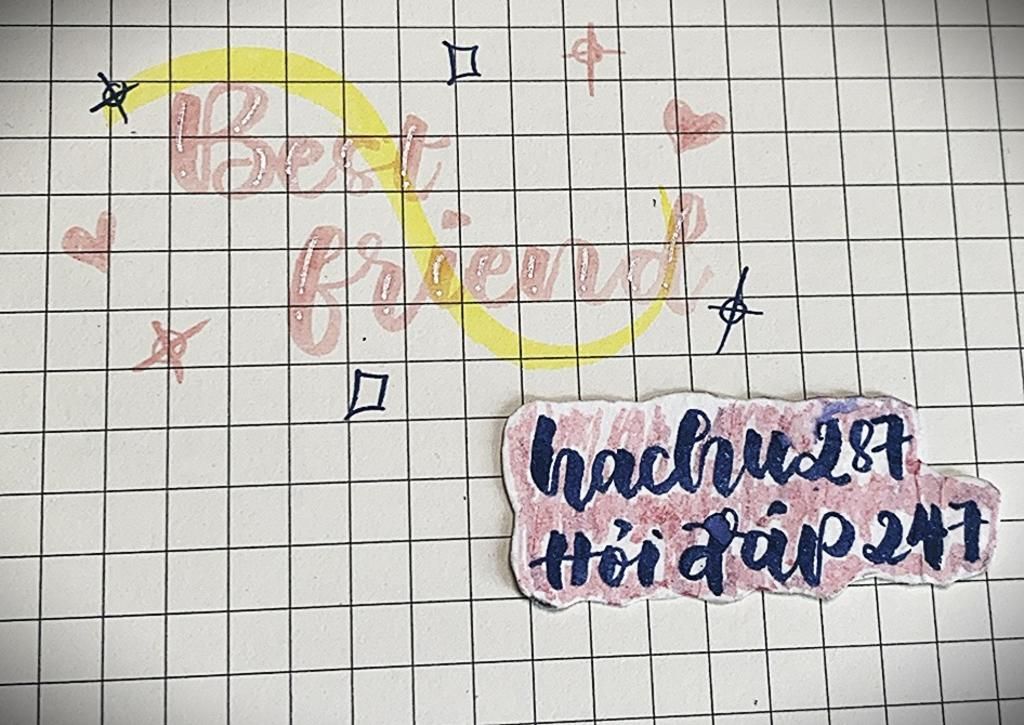 Best
friend
hachu287
Hỏi đáp 247